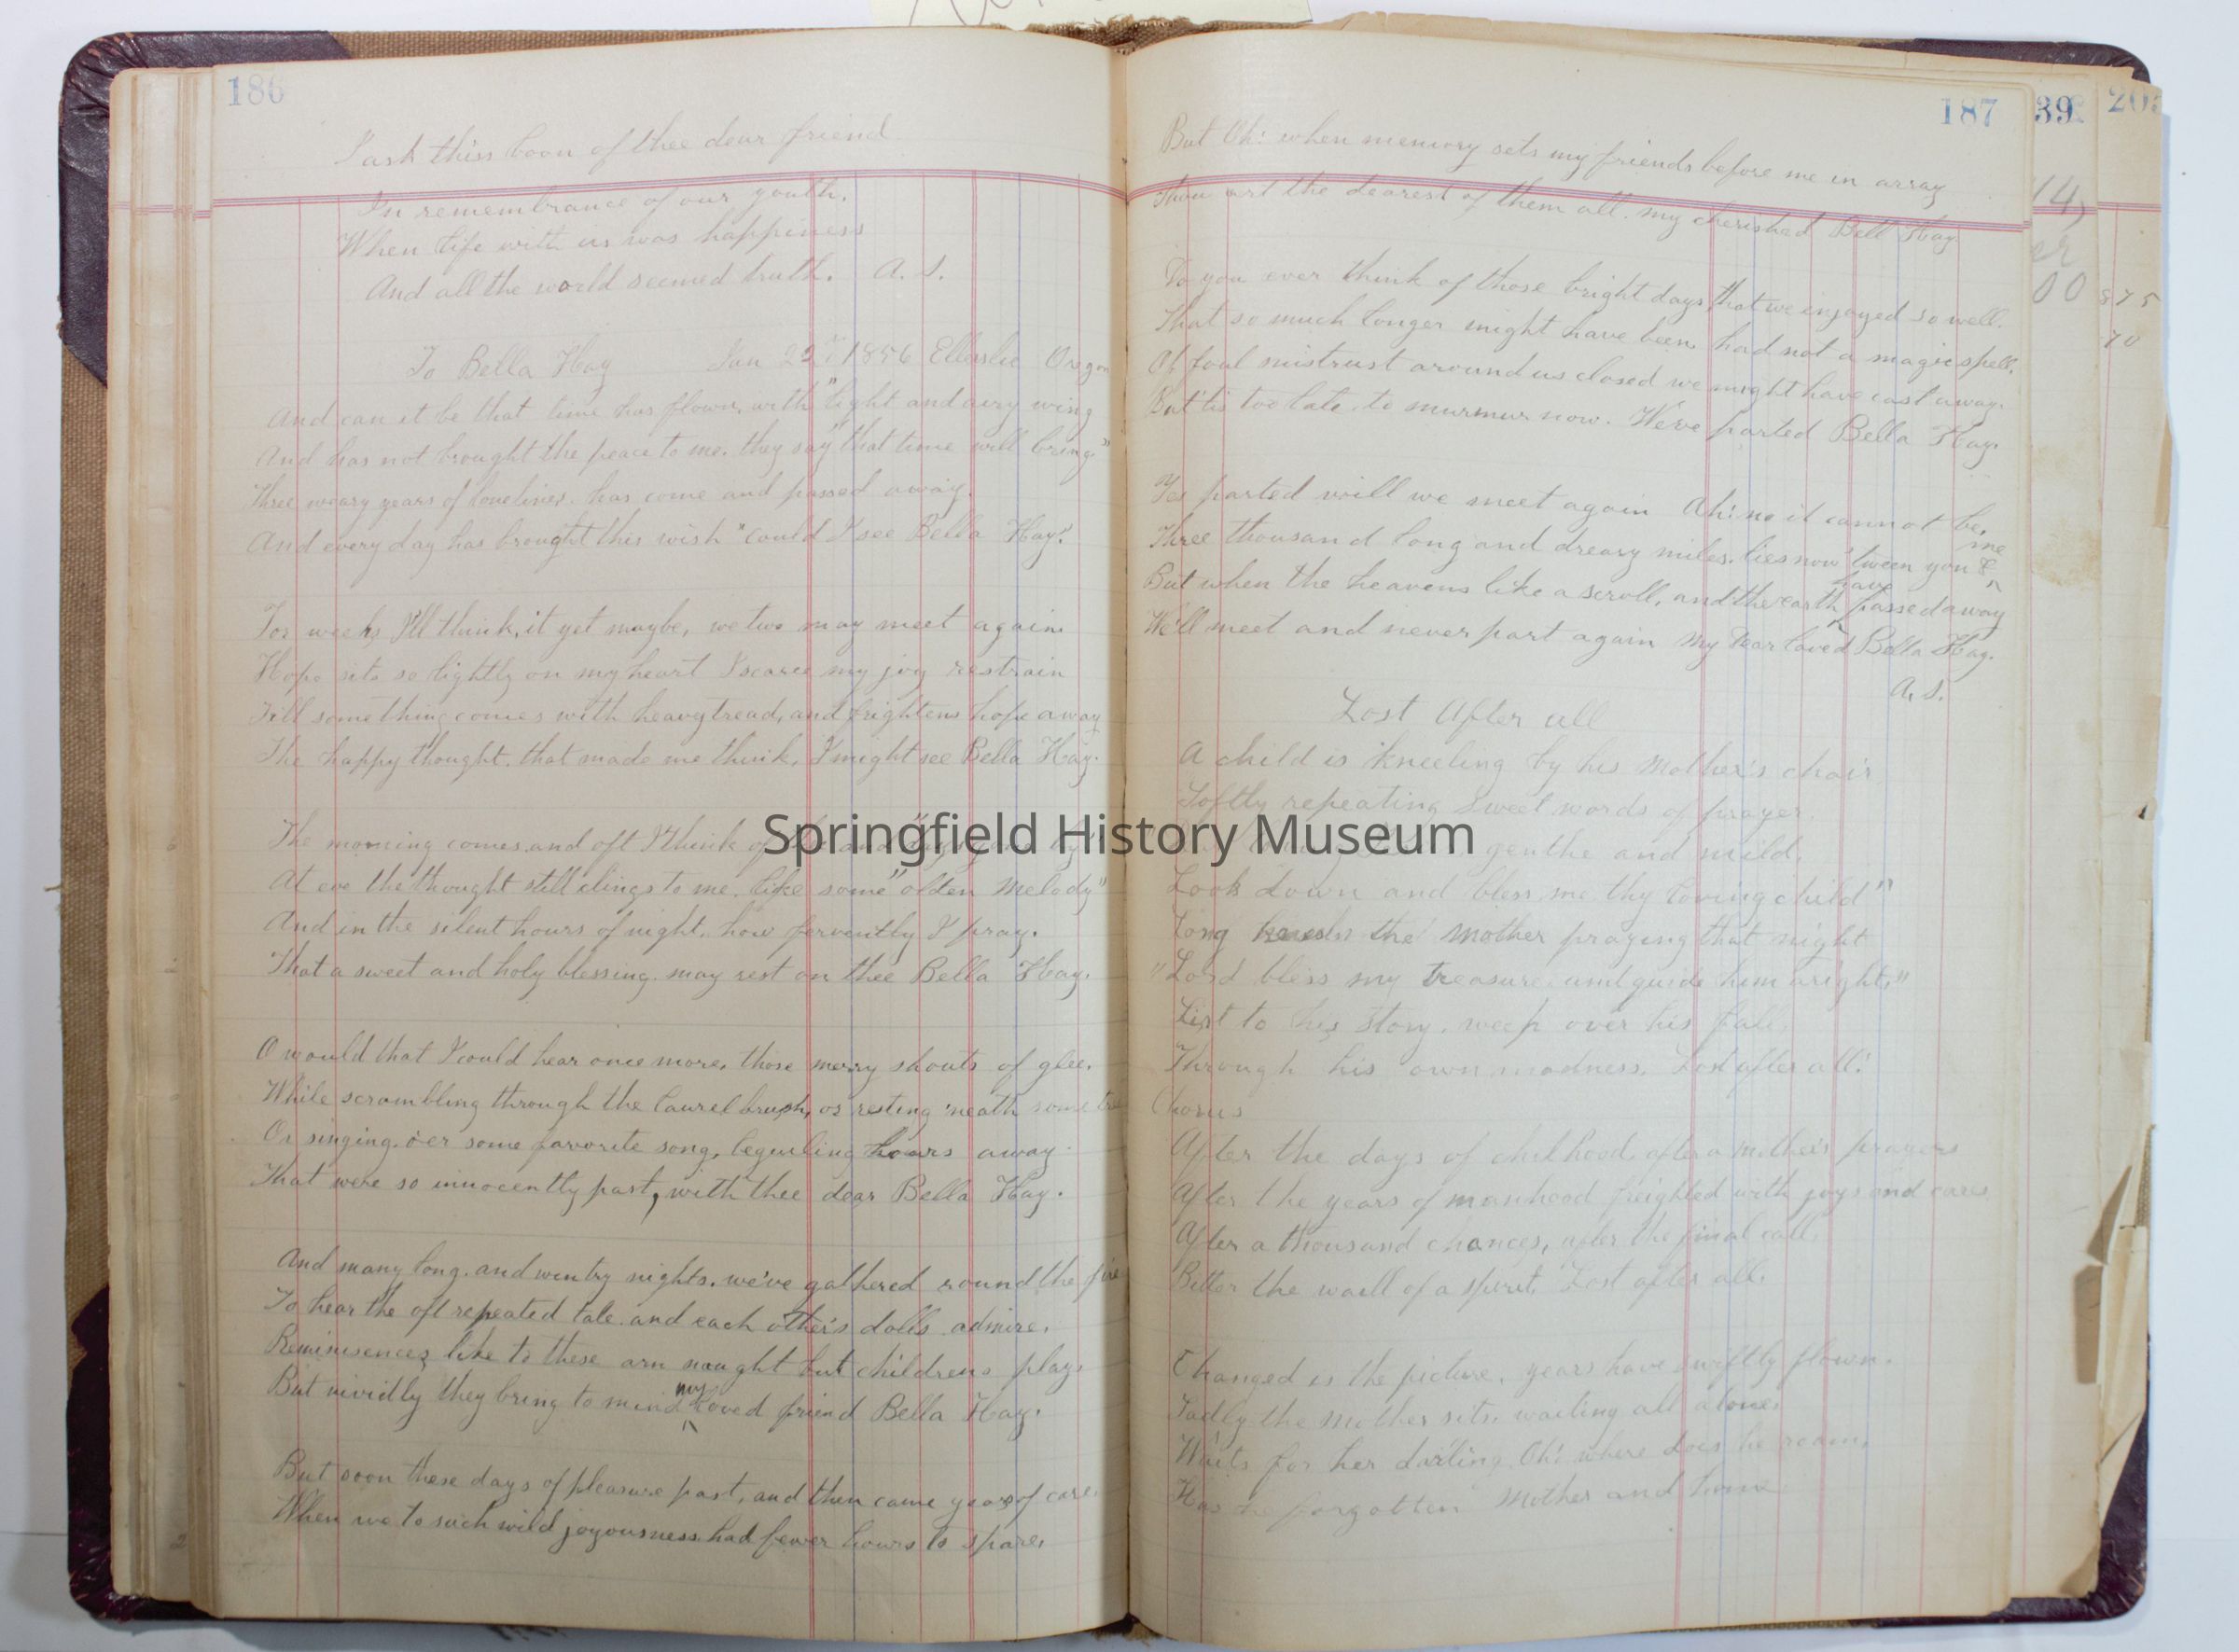 186
I ask this boon of thee dear friend
In remembrance of our youth.
When life with us was happiness
And all the world seemed truth. A. S.
To Bella Hay Jan 22 1856 Ellerslie Oregon
And can it be that time has flown, with "light and airy wing
And has not brought the peace to me. they say "that time will bring"
Three weary years of loneliness. has come and passed away.
And every day has brought this wish "could I see Bella Hay".
For weeks I'll think, it yet maybe, we two may meet again
Hope sits so lightly on my heart I scarce my joy restrain
Till something comes with heavy tread, and frightens hope away
The happy thought. that made me think, I might see Bella Hay.
The morning comes, and oft I think of
At eve the thought still clings to me. like some "olden melody"
And in the silent hours of night. how fervently I pray.
That a sweet and holy blessing may rest on thee Bella Hay.
O would that I could hear once more, those merry shouts of glee.
While scrambling through the laurel brush, or resting 'neath some tree
Or singing o'er some favorite song, beguiling hours away.
That were so innocently past, with thee dear Bella Hay.
And many long. and wintry nights. we've gathered round the fire
To hear the oft repeated tale. and each other's dolls admire.
Reminisences like to these arn naught but childrens plays
But vividly they bring to mind my loved friend Bella Hay.
But soon these days of pleasure past, and then came years of care.
When we to such wild joyousness had fewer hours to spare.
187
But Oh! when memory sets my friends before me in array
Thou art the dearest of them all. my cherished Bell Hay
Do you ever think of those bright days that we enjoyed so well.
That so much longer might have been, had not a magic spell.
Of foul mistrust around us closed we might have cast away.
But 'tis too late, to murmur now. We've parted Bella Hay.
Yes parted will we meet again Ah! no it cannot be.
Three thousand long and dreary miles. lies now 'tween you & me
But when the heavens like a scroll, and the earth have passed away
We'll meet and never part again My dear loved Bella Hay.
A. S.
Lost After all
A child is kneeling by his Mother's chair
Softly repeating Sweet words of prayer.
gentle and mild.
Look down and bless me thy loving child"
Long the Mother praying that night
"Lord bless my treasure and guide him aright."
List to his story. weep over his fall
Through his own madness, Lost after all!
Chorus
After the days of childhood, after a mother's prayers
After the years of manhood freighted with joys and cares
After a thousand chances, after the final call
Bitter the wail of a spirit, Lost after all.
Changed is the picture, years have swiftly flown.
Sadly the Mother sits. waiting all alone.
Waits for her darling Oh! where does he roam,
Has he forgotten Mother and home
39
205
14)
er
00
875
70
Springfield History Museum